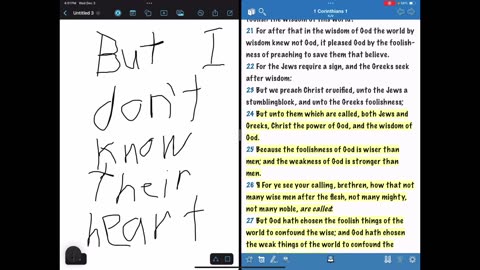 Untitled 3
But I
don't
know
their
heart
1 Corinthians 1
21 For after that in the wisdom of God the world by
wisdom knew not God, it pleased God by the foolish-
ness of preaching to save them that believe.
22 For the Jews require a sign, and the Greeks seek
after wisdom:
23 But we preach Christ crucified, unto the Jews a
stumblingblock, and unto the Greeks foolishness;
24 But unto them which are called, both Jews and
Greeks, Christ the power of God, and the wisdom of
God.
25 Because the foolishness of God is wiser than
men; and the weakness of God is stronger than
men.
26 ¶ For ye see your calling, brethren, how that not
many wise men after the flesh, not many mighty,
not many noble, are called:
27 But God hath chosen the foolish things of the
world to confound the wise; and God hath chosen
the weak things of the world to confound the